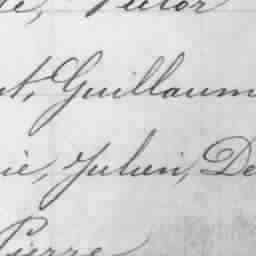 te, Victor
nt, Guillaum
ie, Julien, De
Pierre